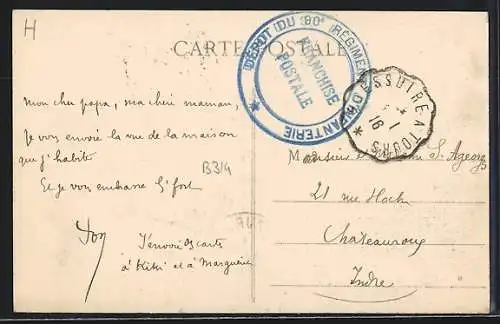 H
CARTE POSTALE
DÉPÔT DU 90e RÉGIMENT D'INFANTERIE
FRANCHISE
POSTALE
ESSUIRE A TOURS
1
16
Mon cher papa, ma chère maman,
Je vous envoie la vue de la maison
que j'habite
Et je vous embrasse bien fort
J'envoie des cartes
à Kiki et à Marguerite
B314
Monsieur et St Ageorges
21 rue Hoche
Chateauroux
Indre